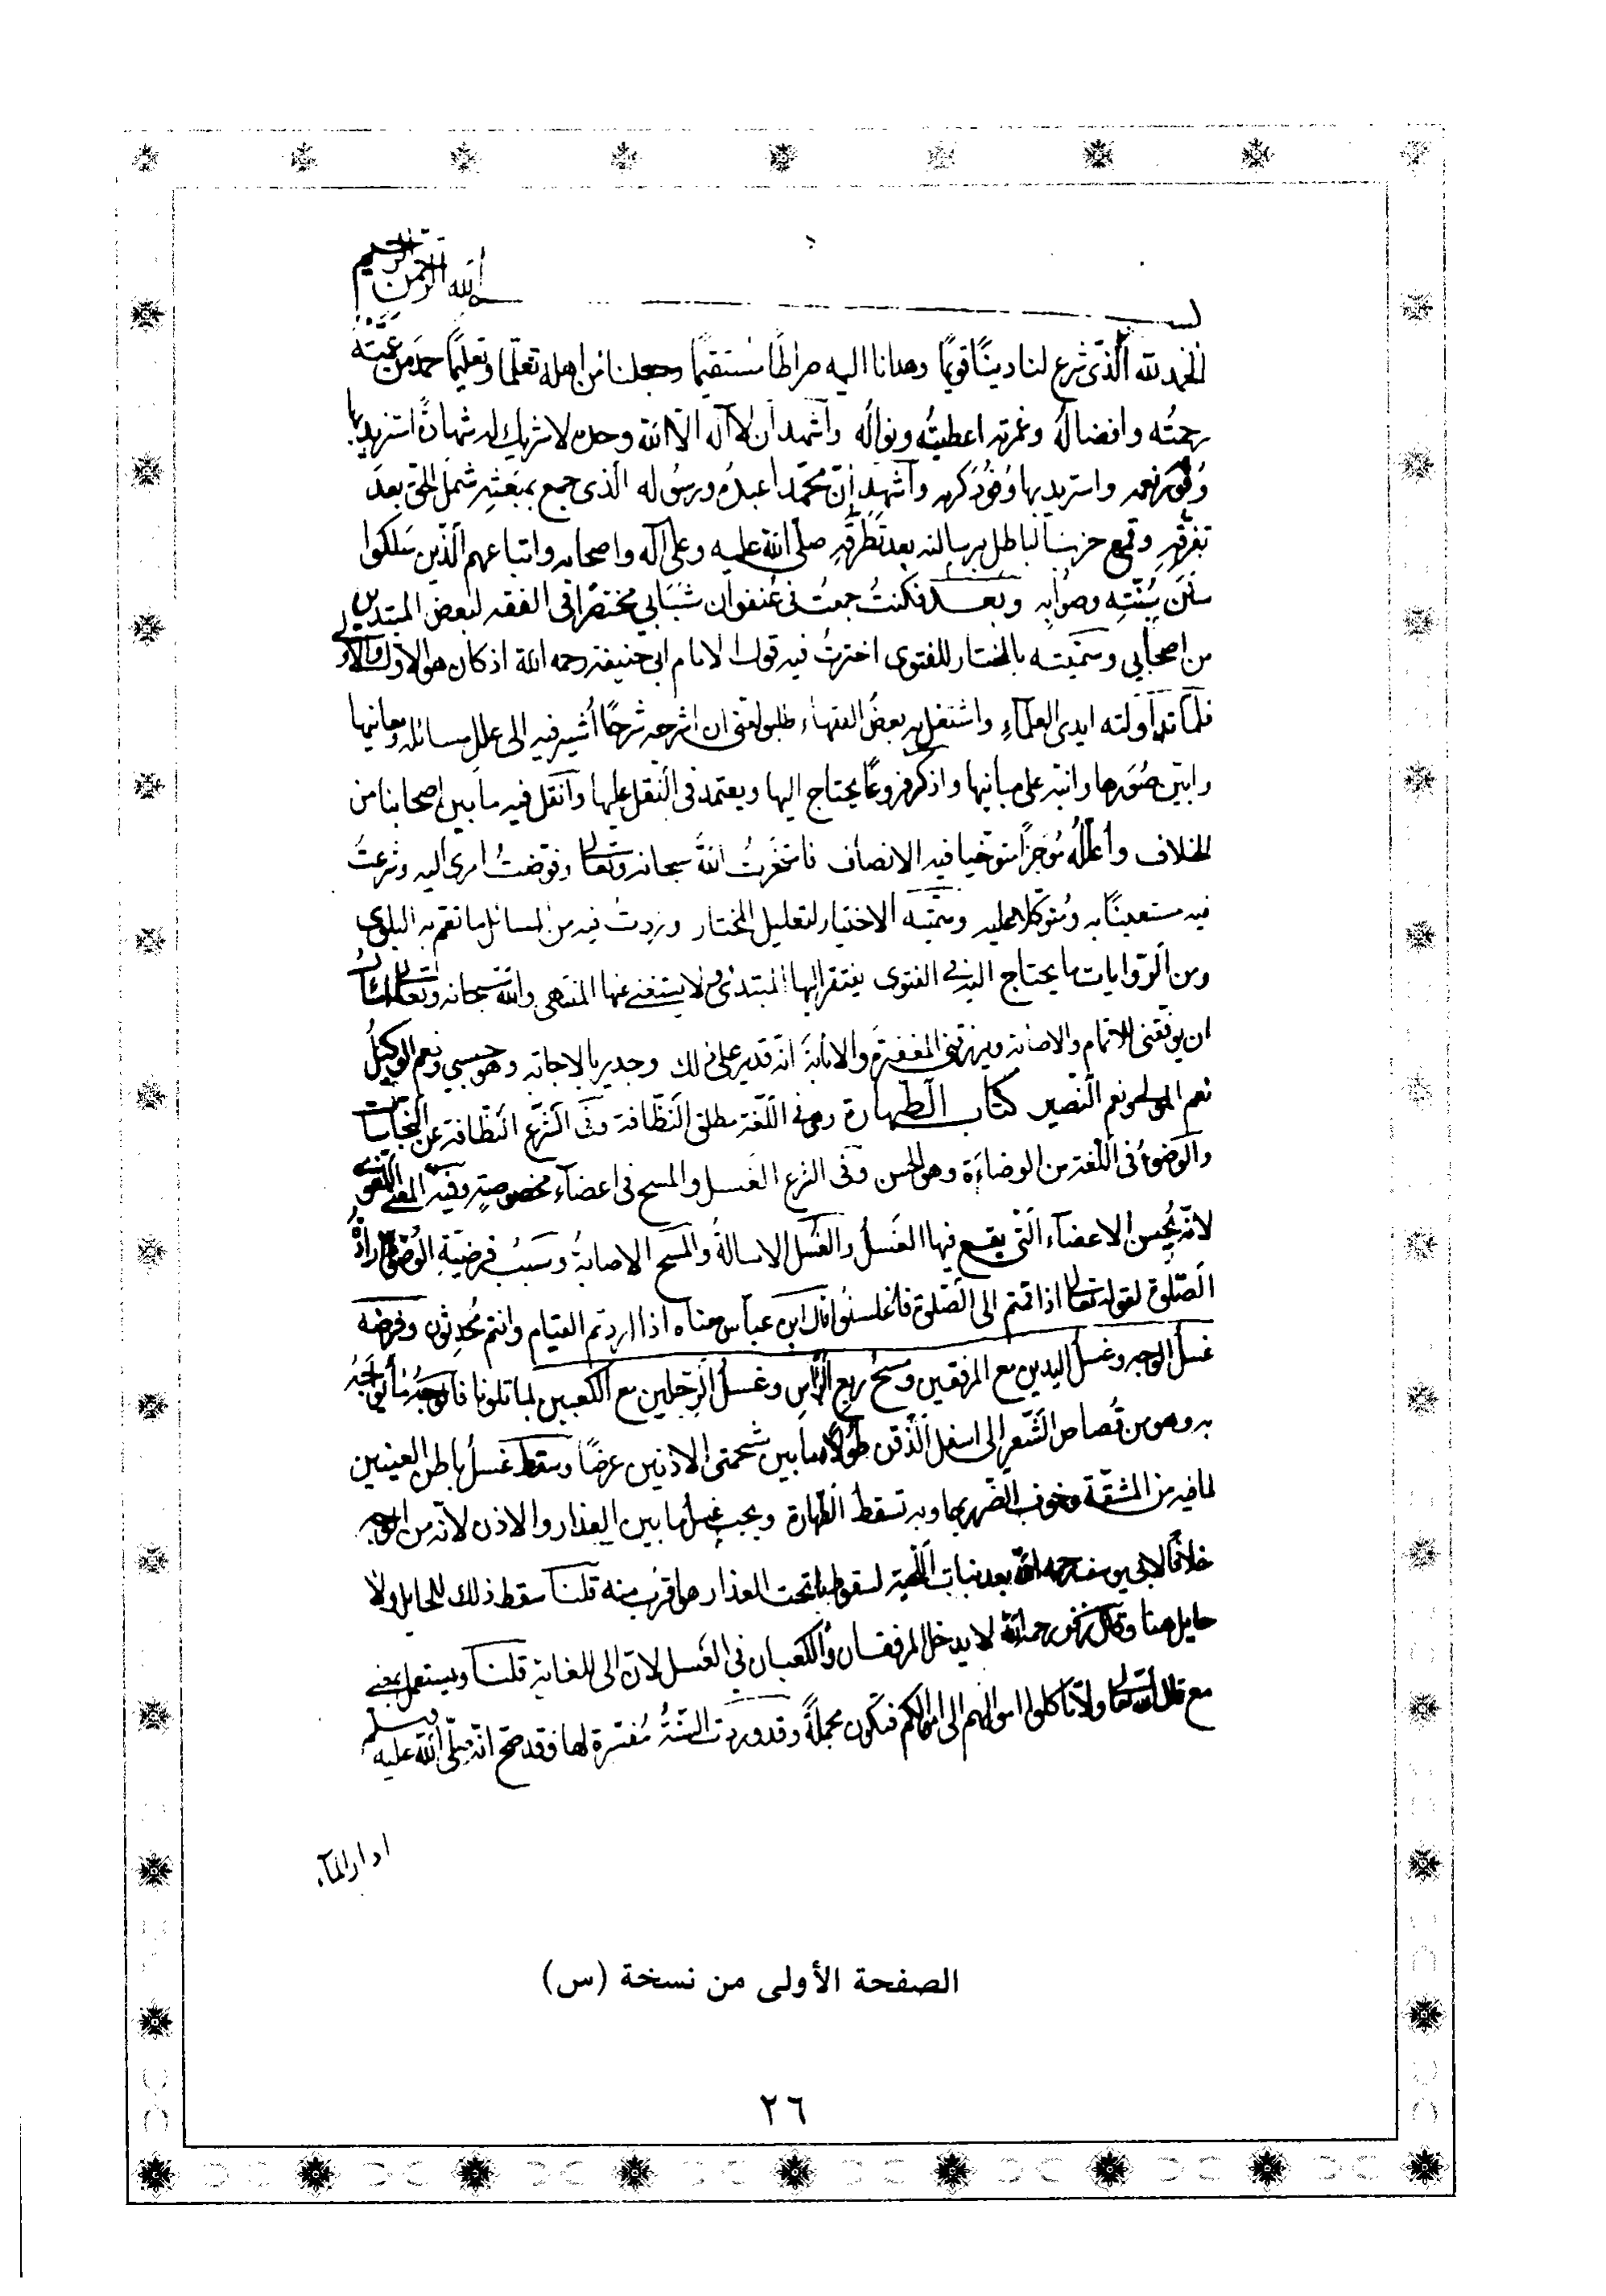 بسم الله الرحمن الرحيم
الحمد لله الذى شرع لنا دينًا قويمًا وهدانا اليه صراطًا مستقيمًا وجعلنا من اهله تعلّما وتعليمًا حمدَ من عمّته
رحمتُه وافضالُهُ وغمرته اعطيتُه ونوالُه وأشهد ان لا آله الّا الله وحده لا شريك له شهادةً استزيد بها
وُفور نعمه واستزيد بها وُفُودَ كرمه وأشهد انّ محمّدًا عبدُه ورسُوله الّذى جمع بمَبْعَثِهِ شملَ الحقّ بعدَ
تفرّقهِ وقمع حزبَ الباطل برسالته بعد تَطَرُّقهِ صلّى الله عليه وعلى آله واصحابه واتباعهم الّذين سَلكوا
سَنَنَ سُنّتِه وصوابِه وبعد فكنتُ جمعتُ فى عُنفوان شَبَابي مختصرًا فى الفقه لبعض المبتدين
من اصحابي وسمّيته بالمختار للفتوى اخترتُ فيه قول الامام ابى حنيفة رحمه الله اذ كان هو الاول والاولى
فلمّا تداولته ايدى العلمآءِ واشتغل به بعضُ الفقهاء طلبوا منى ان اشرحه شرحًا أُشير فيه الى علل مسائله ومعانيها
وابيّن صُوَرها وانبّه على مبانيها واذكر فروعًا يحتاج اليها ويعتمد فى النّقل عليها وأنقل فيه ما بين اصحابنا من
الخلاف وأعلّلُه مُوجزًا متوخّيا فيه الانصاف فاستخرتُ اللهَ سبحانه وتعالى وفوّضتُ امرى اليه وشرعتُ
فيه مستعينًا به ومُتوكّلا عليه وسمّيته الاختيار لتعليل المختار وزدتُ فيه من المسائل ما تعمّ به البلوى
ومن الرّوايات ما يحتاج اليه في الفتوى يفتقر اليها المبتدى ولا يستغنى عنها المنتهى والله سبحانه وتعالى اسأل
ان يوفّقنى للاتمام والاصابة ويرزقنى المغفرةَ والانابةَ انّه قدير على ذلك وجدير بالاجابة وهو حسبي ونعم الوكيلُ
نعم المولى ونعم النّصير كتاب الطّهارة وهى فى اللّغة مطلق النّظافة وفى الشرع النّظافة عن النجاسات
والوضوءُ فى اللّغة من الوضاءَة وهو الحسن وفى الشرع الغَسل والمسح فى اعضآء مخصوصةٍ وفيه المعنى اللغوى
لانّه يُحسن الاعضآء الّتى يقع فيها الغَسلُ والغَسل الاسالةُ والمسح الاصابةُ وسَبَبُ فرضيّة الوُضوء ارادةُ
الصّلوة لقوله تعالى اذا قمتم الى الصّلوة فاغسلوا قال ابن عباس معناه اذا اردتم القيام وانتم مُحدثون وفرضه
غسلُ الوجه وغسلُ اليدين مع المرفقين ومسحُ ربع الرّأس وغسلُ الرّجلين مع الكعبين لما تلونا فالوجهُ ما يُواجَهُ
به وهو من قُصاص الشّعر الى اسفل الذّقن طُولًا وما بين شحمتى الاذنين عرضًا وسقط غسلُ باطن العينين
لما فيه من المشقّة وخوف الضّرر بها وبه تسقط الطّهارة ويجب غسلُ ما بين العذار والاذن لانّه من الوجه
خلافًا لابى يوسف رحمه الله بعد نبات اللّحية لسقوط ما تحت العذار وهو اقرب منه قلنا سقط ذلك للحايل ولا
حايل هنا وقال زفر رحمه الله لا يدخل المرفقان والكعبان في الغسل لانّ الى للغاية قلنا ويستعمل بمعنى
مع قال الله تعالى ولا تأكلوا اموالهم الى اموالكم فتكون مجملةً وقد وردت السّنّةُ مُفسّرة لها فقد صحّ انّه صلّى الله عليه وسلم
ادار المآء
الصفحة الأولى من نسخة (س)
٢٦